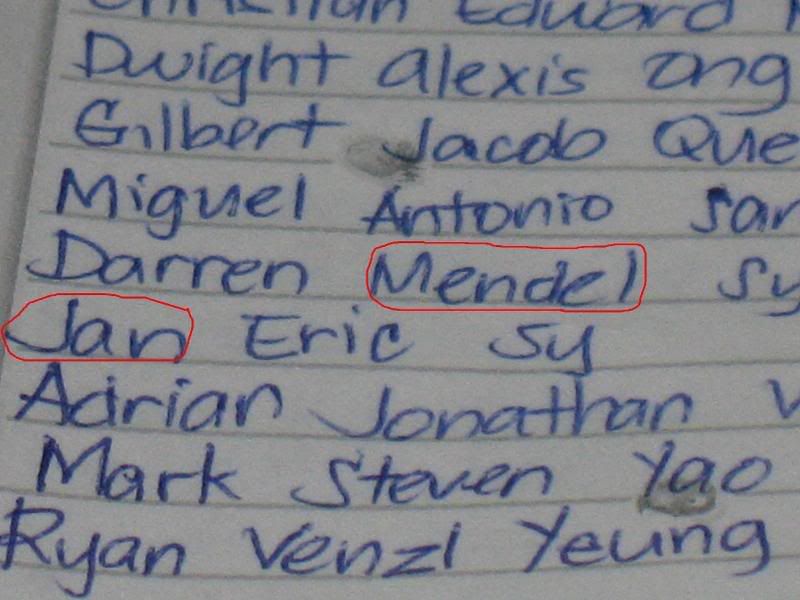 Christian Eduard
Dwight Alexis Ong
Gilbert Jacob Que
Miguel Antonio San
Darren Mendel Sy
Jan Eric Sy
Adrian Jonathan
Mark Steven Yao
Ryan Venzl Yeung